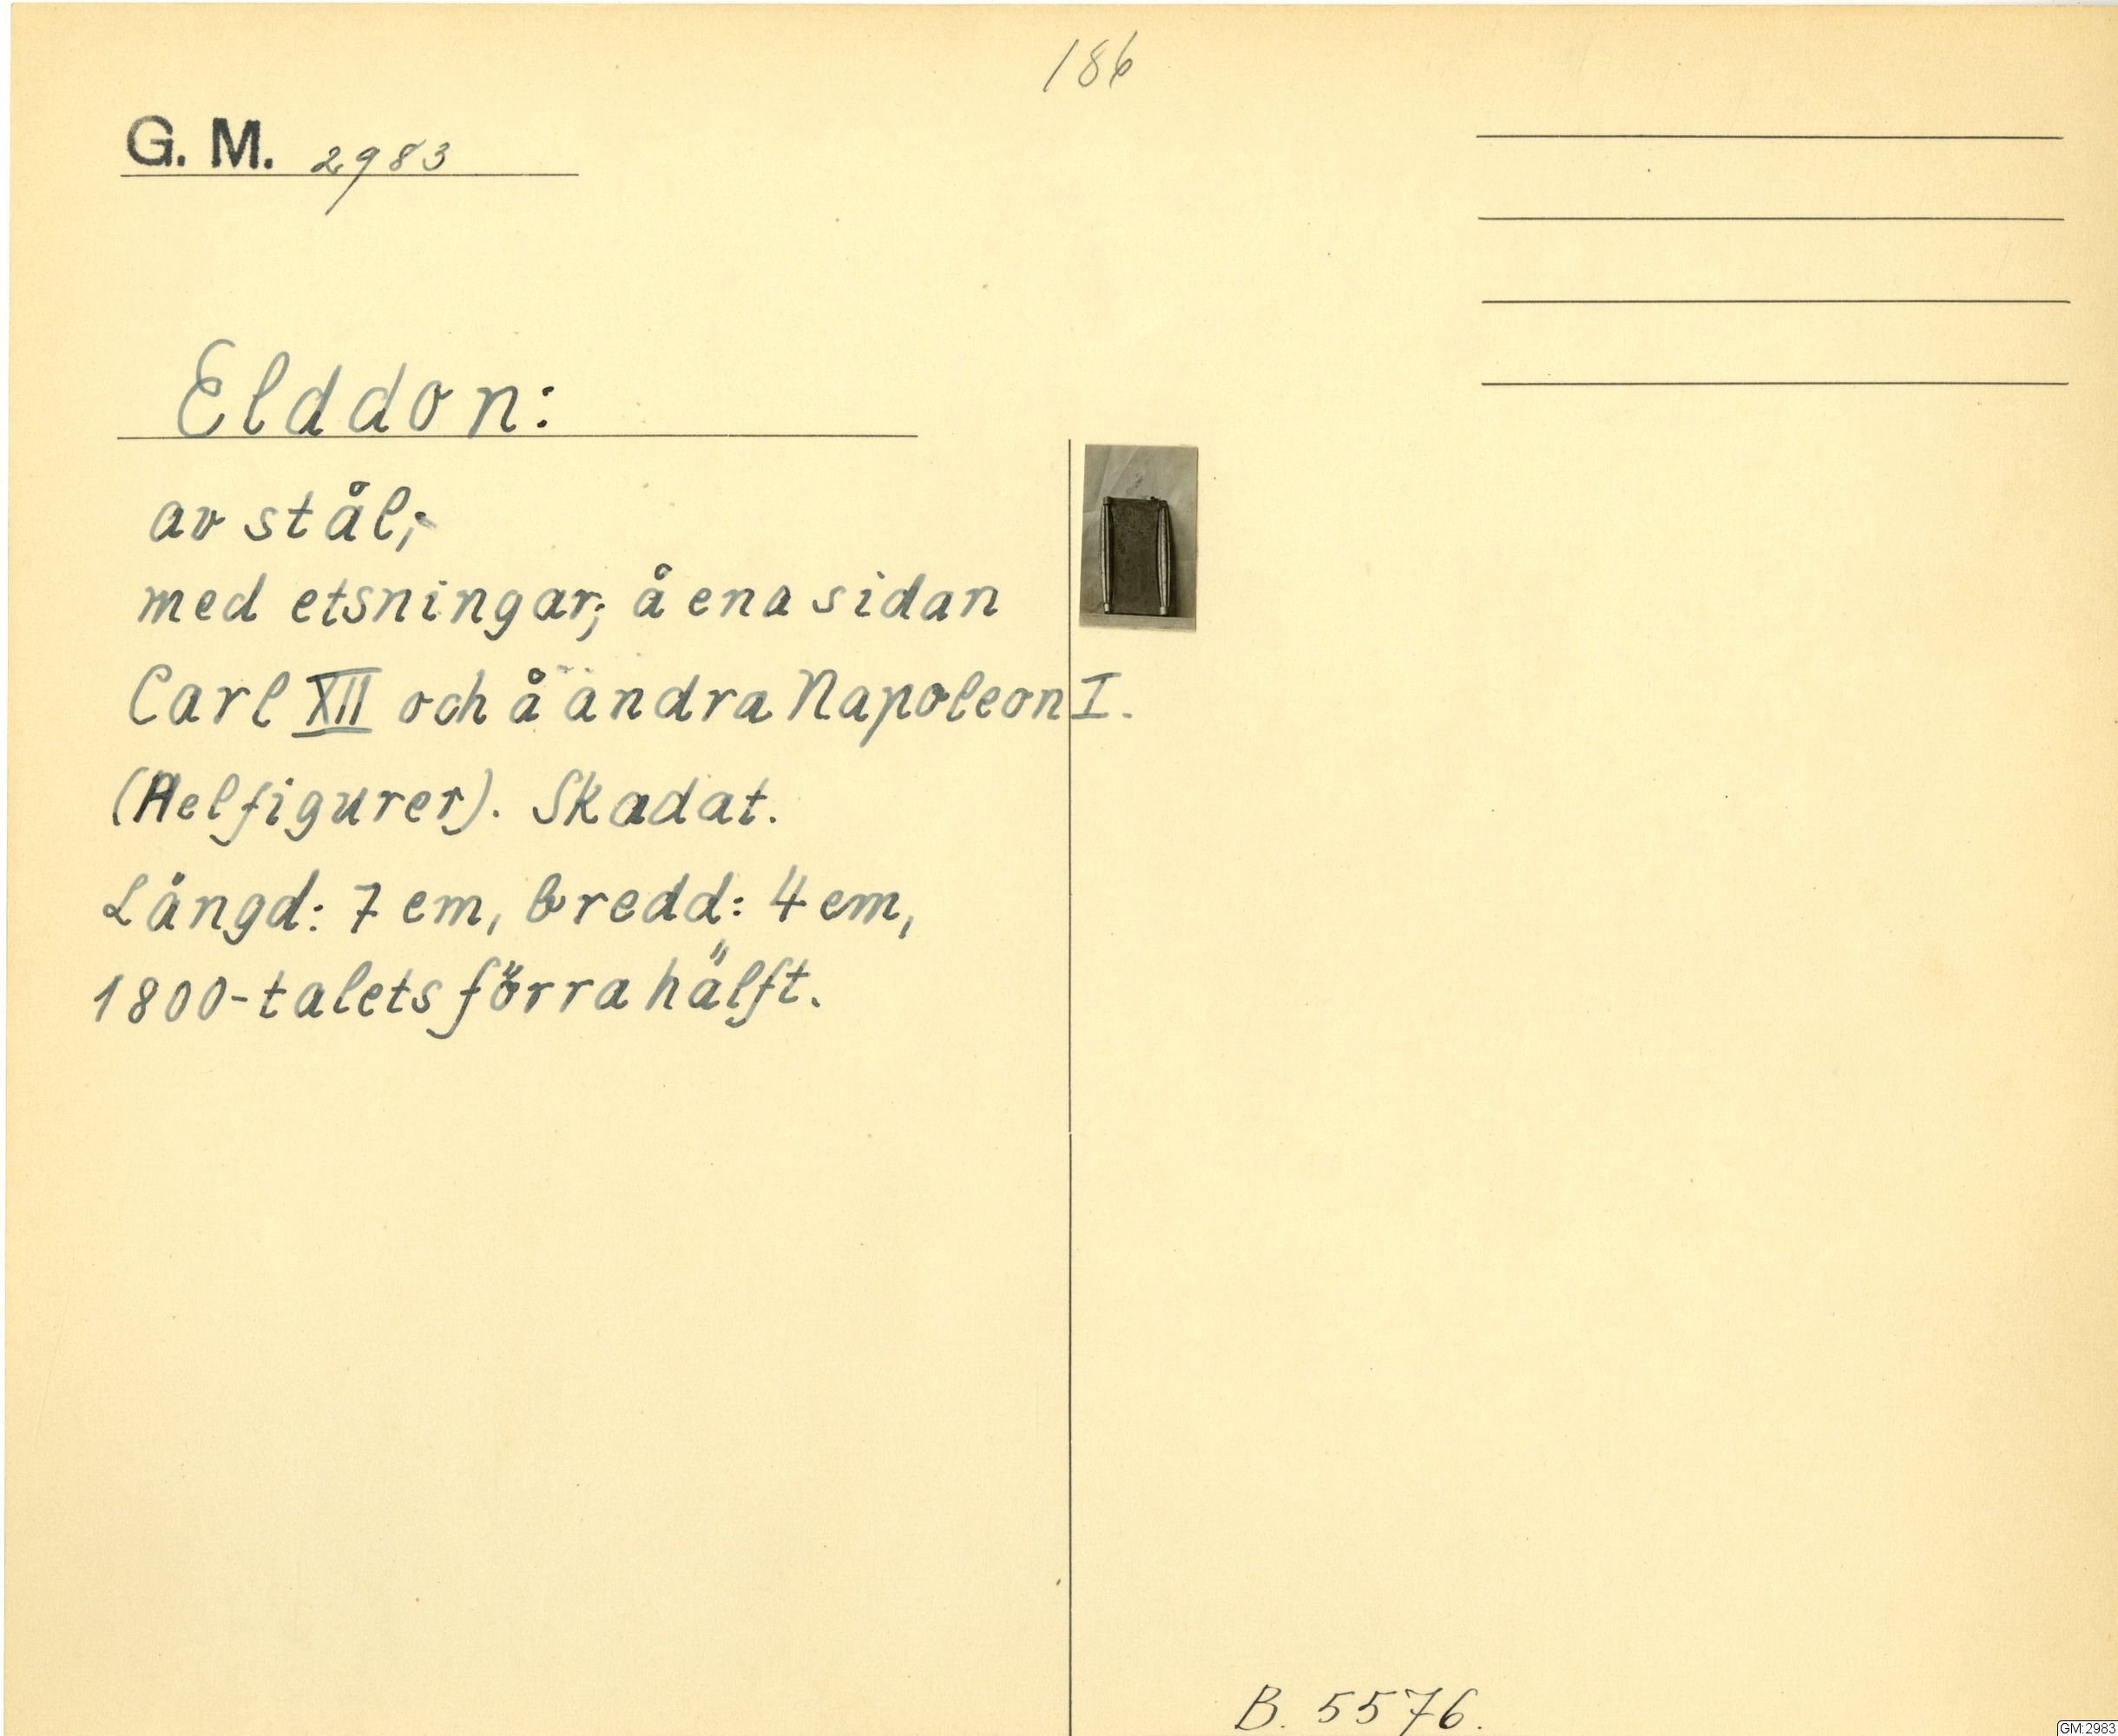 186
G. M. 2983
Elddon:
av stål;
med etsningar; å ena sidan
Carl XII och å andra Napoleon I.
(Helfigurer). Skadat.
Längd: 7 cm, bredd: 4 cm,
1800-talets förra hälft.
B. 5576.
GM:2983